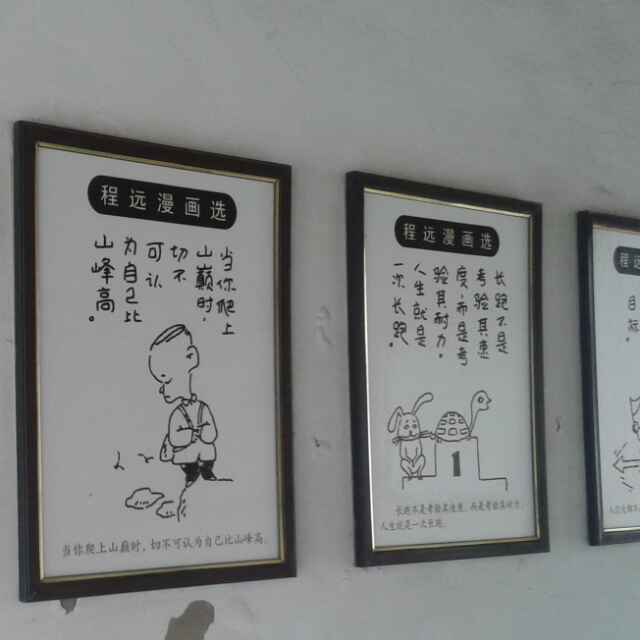 程远漫画选
当你爬上
山巅时，
切不
可认
为自己比
山峰高。
当你爬上山巅时，切不可认为自己比山峰高。
程远漫画选
长跑不是
考验其速
度，而是考
验其耐力。
人生就是
一次长跑。
1
长跑不是考验其速度，而是考验其耐力。
人生就是一次长跑。
程远